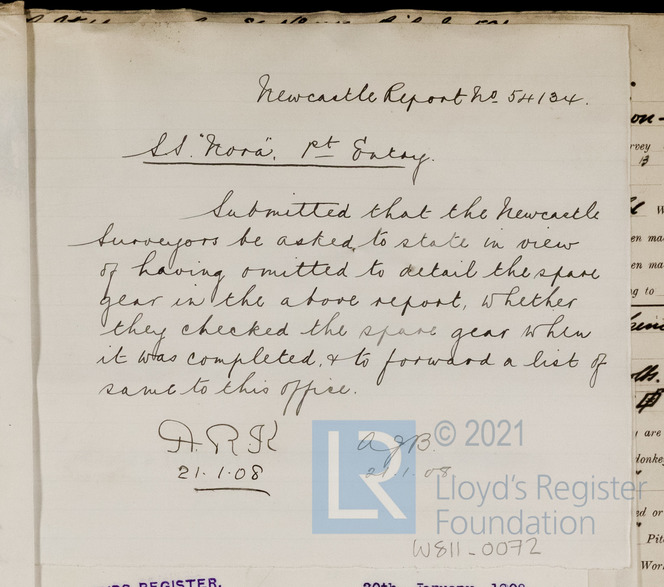 Newcastle Report No. 54134.
SS. "Nora". 1st Entry.
Submitted that the Newcastle
Surveyors be asked to state in view
of having omitted to detail the spare
gear in the above report, whether
they checked the spare gear when
it was completed, & to forward a list of
same to this office.
A.R.K A.J.B.
21.1.08 21.1.08
LR © 2021
Lloyd's Register
Foundation
W811-0072
REGISTER. January